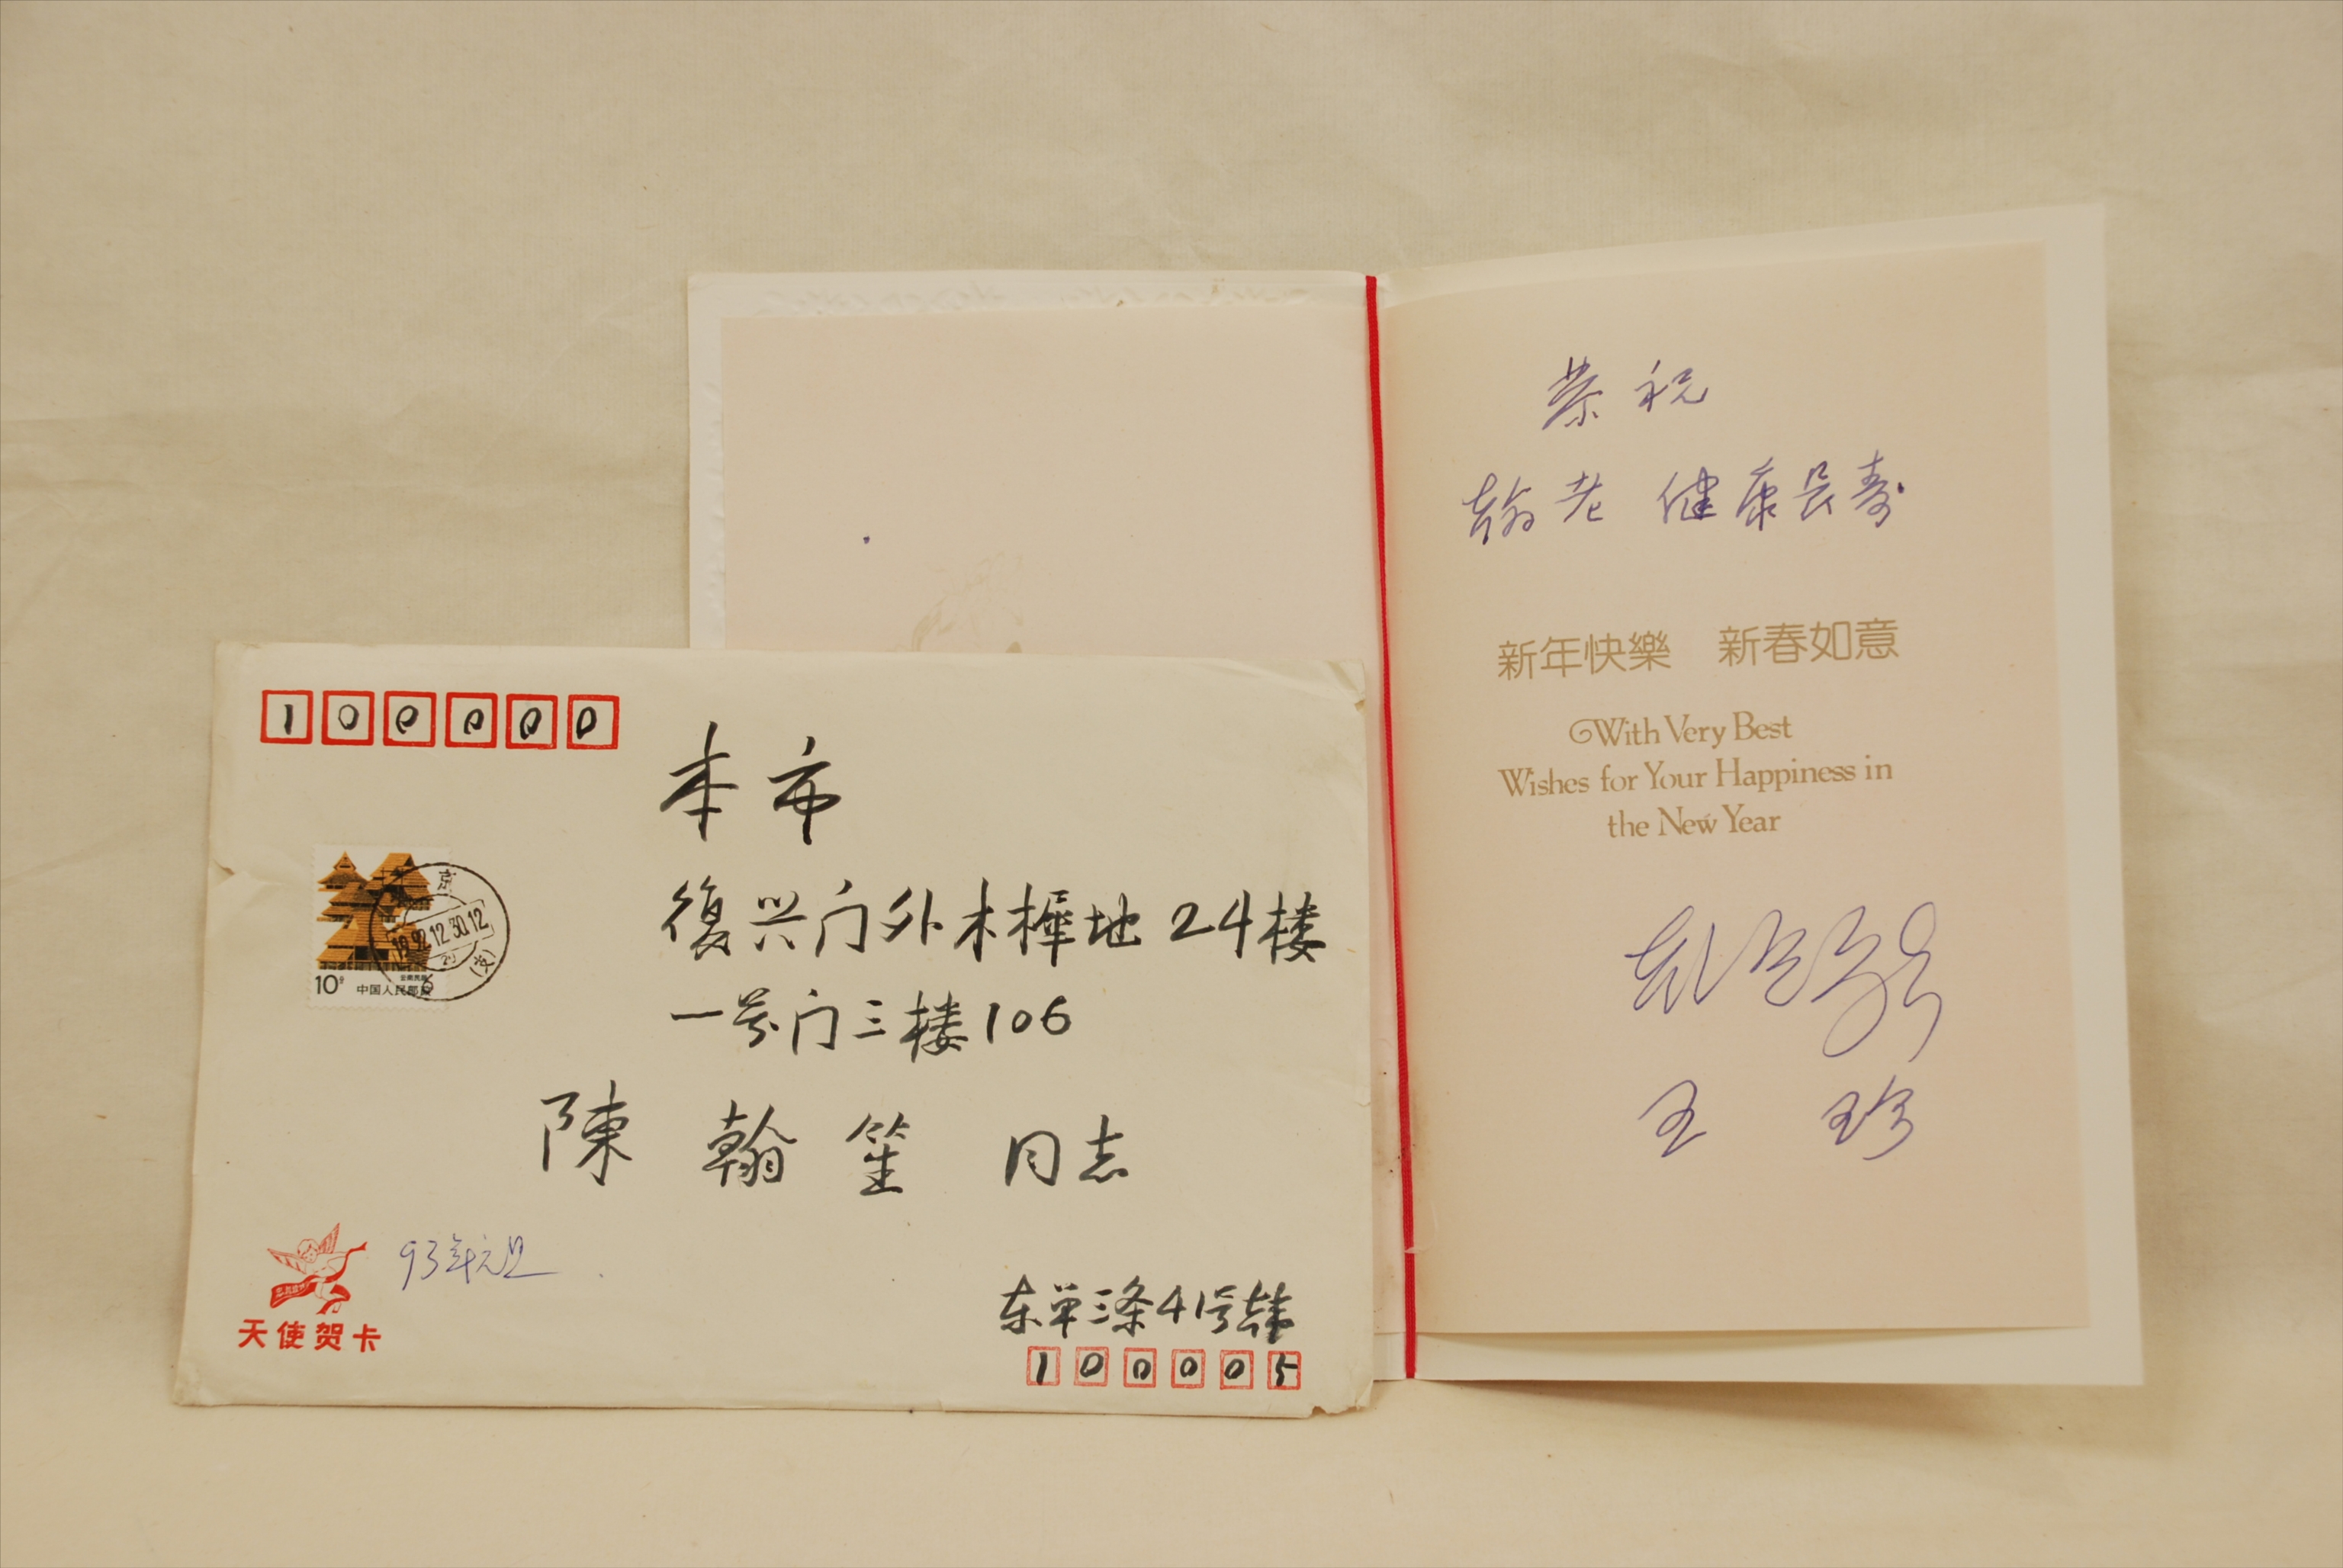 100000
本市
復兴门外木樨地24楼
一号门三楼106
陳翰笙 同志
10分 中国人民邮政
京
1992.12.30.12
(支)
93年元旦
天使贺卡
东单三条41号韩
100005
恭祝
翰老 健康长寿
新年快樂 新春如意
With Very Best
Wishes for Your Happiness in
the New Year
王 珍